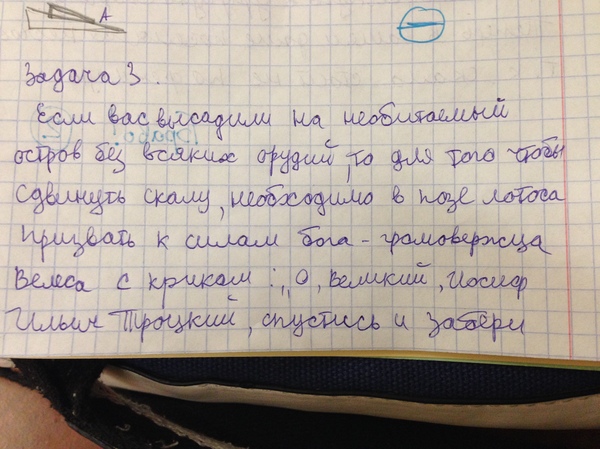 A
Задача 3.
Если вас высадили на необитаемый
остров без всяких орудий, то для того чтобы
сдвинуть скалу, необходимо в позе лотоса
призвать к силам бога-громовержца
Велеса с криком: „О, великий, Иосиф
Ильич Троцкий, спустись и забери